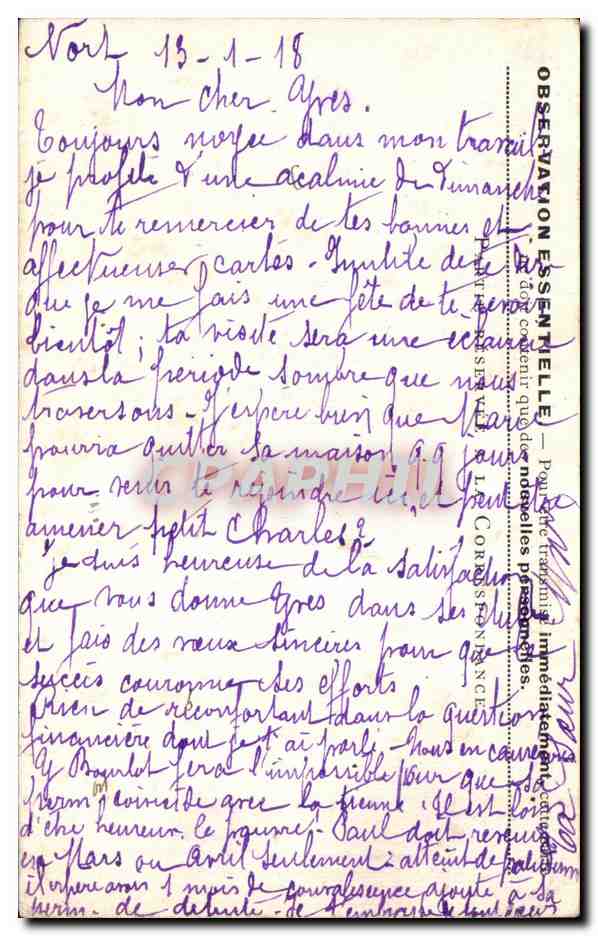 Nort 13-1-18
Mon cher Yves.
Toujours noyée dans mon travail
je profite d'une acalmie du Dimanche
pour te remercier de tes bonnes et
affectueuses cartes - Inutile de te dire
que je me fais une fête de te revoir
bientôt; ta visite sera une éclaircie
dans la période sombre que nous
traversons - J'espère bien que Marie
pourra quitter sa maison qq jours
pour venir te rejoindre ici, et peut
amener petit Charles?
je suis heureuse de la satisfaction
que vous donne Yves dans ses études
et fais des vœux sincères pour que le
succès couronne ses efforts
Rien de reconfortant dans la question
financière dont je t'ai parlé - Nous en causerons
Bourlot fera l'impossible pour que sa
perm. coincide avec la tienne. Il est loin
d'être heureux le pauvre! Paul doit revenir
en Mars ou Avril seulement: atteint de
il espère avoir 1 mois de convalescence ajouté à sa
perm. de détente - Je t'embrasse de tout cœur
OBSERVATION ESSENTIELLE. — Pour être transmise immédiatement, cette
ne doit contenir que des nouvelles personnelles.
PARTIE RÉSERVÉE A LA CORRESPONDANCE
CPARHUI